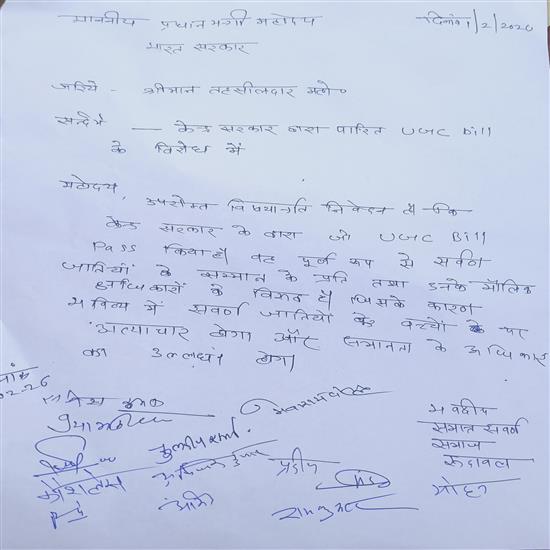 माननीय प्रधान मंत्री महोदय दिनांक 1/2/2026
भारत सरकार
जरिये - श्रीमान तहसीलदार महो०
सन्दर्भ — केन्द्र सरकार द्वारा पारित UGC Bill
के विरोध में
महोदय,
उपरोक्त विषयान्तर्गत निवेदन है कि
केन्द्र सरकार के द्वारा जो UGC Bill
Pass किया है। वह पूर्ण रूप से सवर्ण
जातियों के सम्मान के प्रति तथा उनके मौलिक
अधिकारों के विरुद्ध है। जिसके कारण
भविष्य में सवर्ण जातियों के बच्चों के पर
अत्याचार होगा और समानता के अधिकार
का उल्लघंन होगा।
02.26
भवदीय
समस्त सवर्ण
समाज
रूदावल
प्रदीप